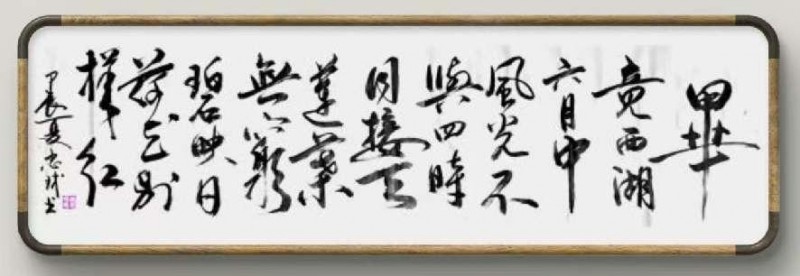 畢
竟西湖
六月中
風光不
與四時
同接天
蓮葉
無窮
碧映日
荷花别
樣紅
甲辰夏志书